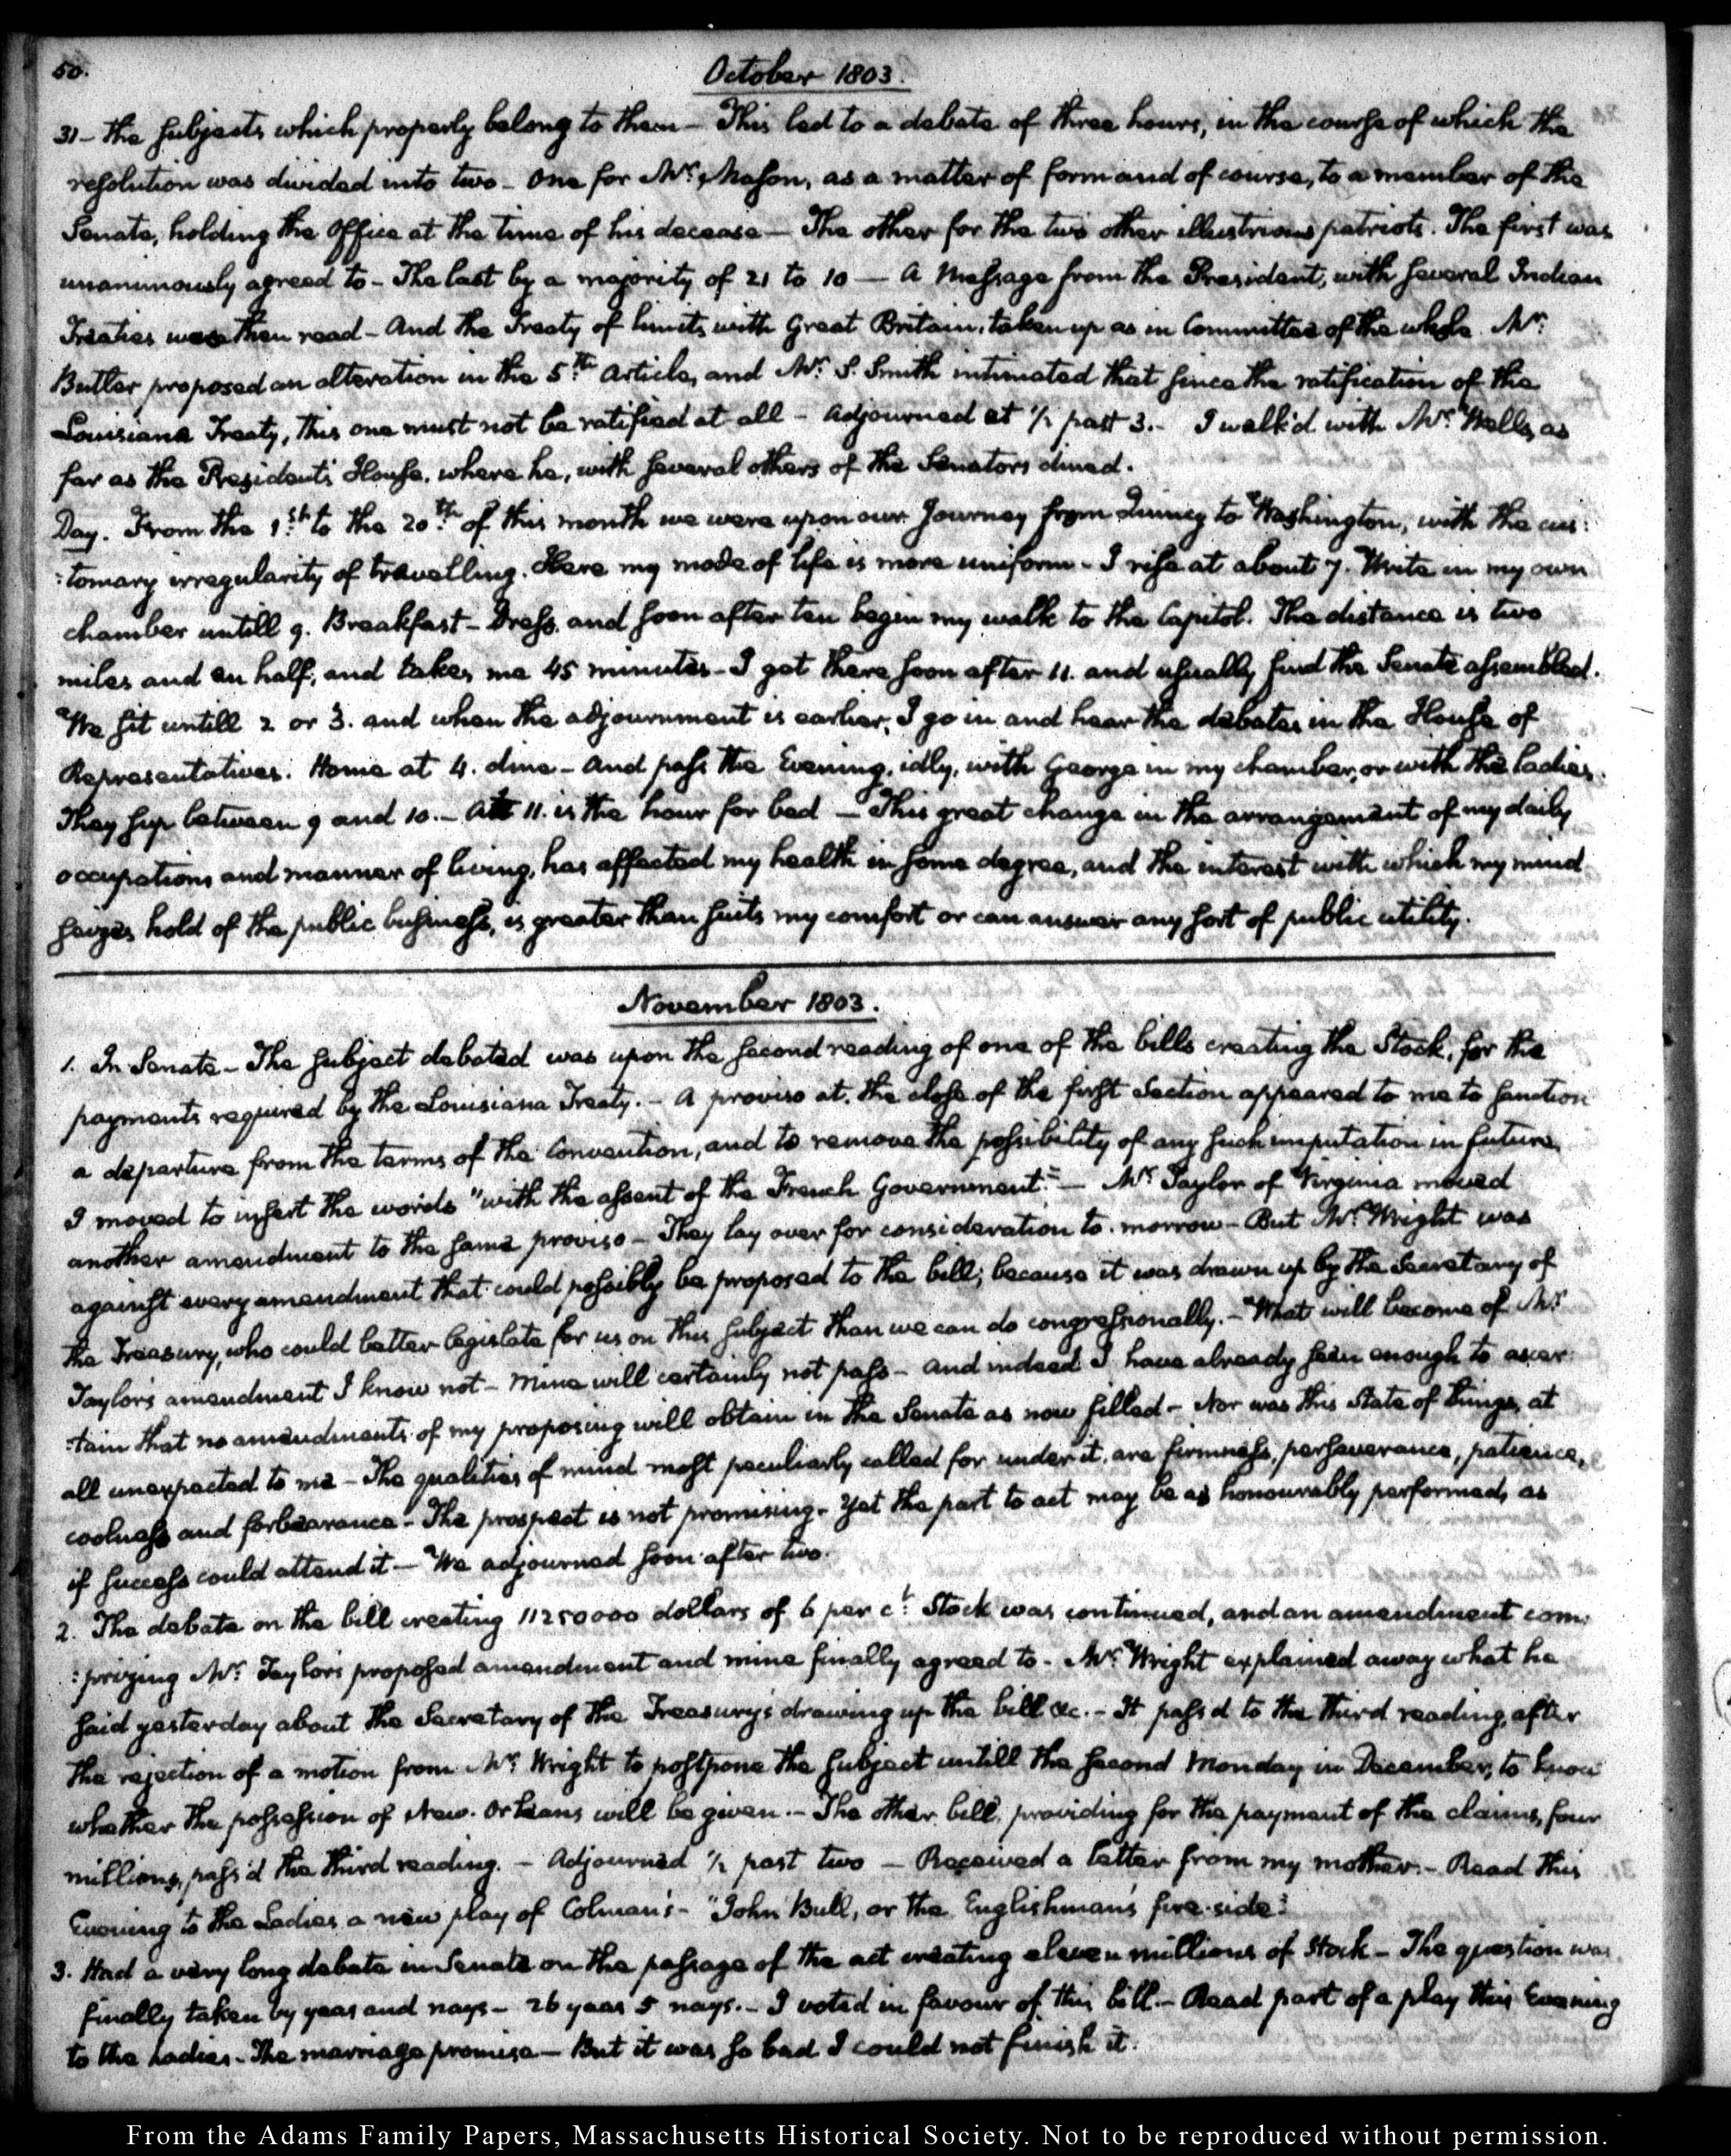 50.
October 1803.
31 – the subjects which properly belong to them – This led to a debate of three hours, in the course of which the
resolution was divided into two – One for Mr. Mason, as a matter of form and of course, to a member of the
Senate, holding the Office at the time of his decease – The other for the two other illustrious patriots. The first was
unanimously agreed to – The last by a majority of 21 to 10 – A Message from the President, with several Indian
Treaties was then read – And the Treaty of limits with Great Britain, taken up as in Committee of the whole. Mr.
Butler proposed an alteration in the 5th Article, and Mr. S. Smith intimated that since the ratification of the
Louisiana Treaty, this one must not be ratified at all – Adjourned at ½ past 3. – I walk'd with Mr. Wells, as
far as the President's House, where he, with several others of the Senators dined.
Day. From the 1st to the 20th of this month we were upon our Journey from Quincy to Washington, with the cus:
:tomary irregularity of travelling. Here my mode of life is more uniform – I rise at about 7. Write in my own
chamber untill 9. Breakfast – Dress, and soon after ten begin my walk to the Capitol. The distance is two
miles and an half, and takes me 45 minutes – I get there soon after 11. and usually find the Senate assembled.
We sit untill 2 or 3. and when the adjournment is earlier, I go in and hear the debates in the House of
Representatives. Home at 4. dine – And pass the Evening, idly, with George in my chamber, or with the ladies.
They sup between 9 and 10. – At 11. is the hour for bed – This great change in the arrangement of my daily
occupations and manner of living, has affected my health in some degree, and the interest with which my mind
seizes hold of the public business, is greater than suits my comfort or can answer any sort of public utility.
November 1803.
1. In Senate – The subject debated was upon the second reading of one of the bills creating the Stock, for the
payments required by the Louisiana Treaty. – A proviso at the close of the first Section appeared to me to sanction
a departure from the terms of the Convention, and to remove the possibility of any such imputation in future,
I moved to insert the words "with the assent of the French Government." – Mr. Taylor of Virginia moved
another amendment to the same proviso – They lay over for consideration to-morrow – But Mr. Wright was
against every amendment that could possibly be proposed to the bill; because it was drawn up by the Secretary of
the Treasury, who could better legislate for us on this subject than we can do congressionally. – What will become of Mr.
Taylor's amendment I know not – Mine will certainly not pass – And indeed I have already seen enough to ascer:
:tain that no amendments of my proposing will obtain in the Senate as now filled – Nor was this state of things, at
all unexpected to me – The qualities of mind most peculiarly called for under it, are firmness, perseverance, patience,
coolness and forbearance – The prospect is not promising – Yet the part to act may be as honourably performed, as
if success could attend it – We adjourned soon after two.
2. The debate on the bill creating 11250000 dollars of 6 per ct. Stock was continued, and an amendment com:
:prizing Mr. Taylor's proposed amendment and mine finally agreed to – Mr. Wright explained away what he
said yesterday about the Secretary of the Treasury's drawing up the bill &c. – It pass'd to the third reading, after
the rejection of a motion from Mr. Wright to postpone the subject untill the second Monday in December, to know
whether the possession of New-Orleans will be given. – The other bill, providing for the payment of the claims, four
millions, pass'd the third reading. – Adjourned ½ past two – Received a letter from my mother. – Read this
Evening to the Ladies a new play of Colman's – "John Bull, or the Englishman's fire-side."
3. Had a very long debate in Senate on the passage of the act creating eleven millions of Stock – The question was
finally taken by yeas and nays – 26 yeas 5 nays. – I voted in favour of this bill. – Read part of a play this Evening
to the Ladies – The marriage promise – But it was so bad I could not finish it.
From the Adams Family Papers, Massachusetts Historical Society. Not to be reproduced without permission.